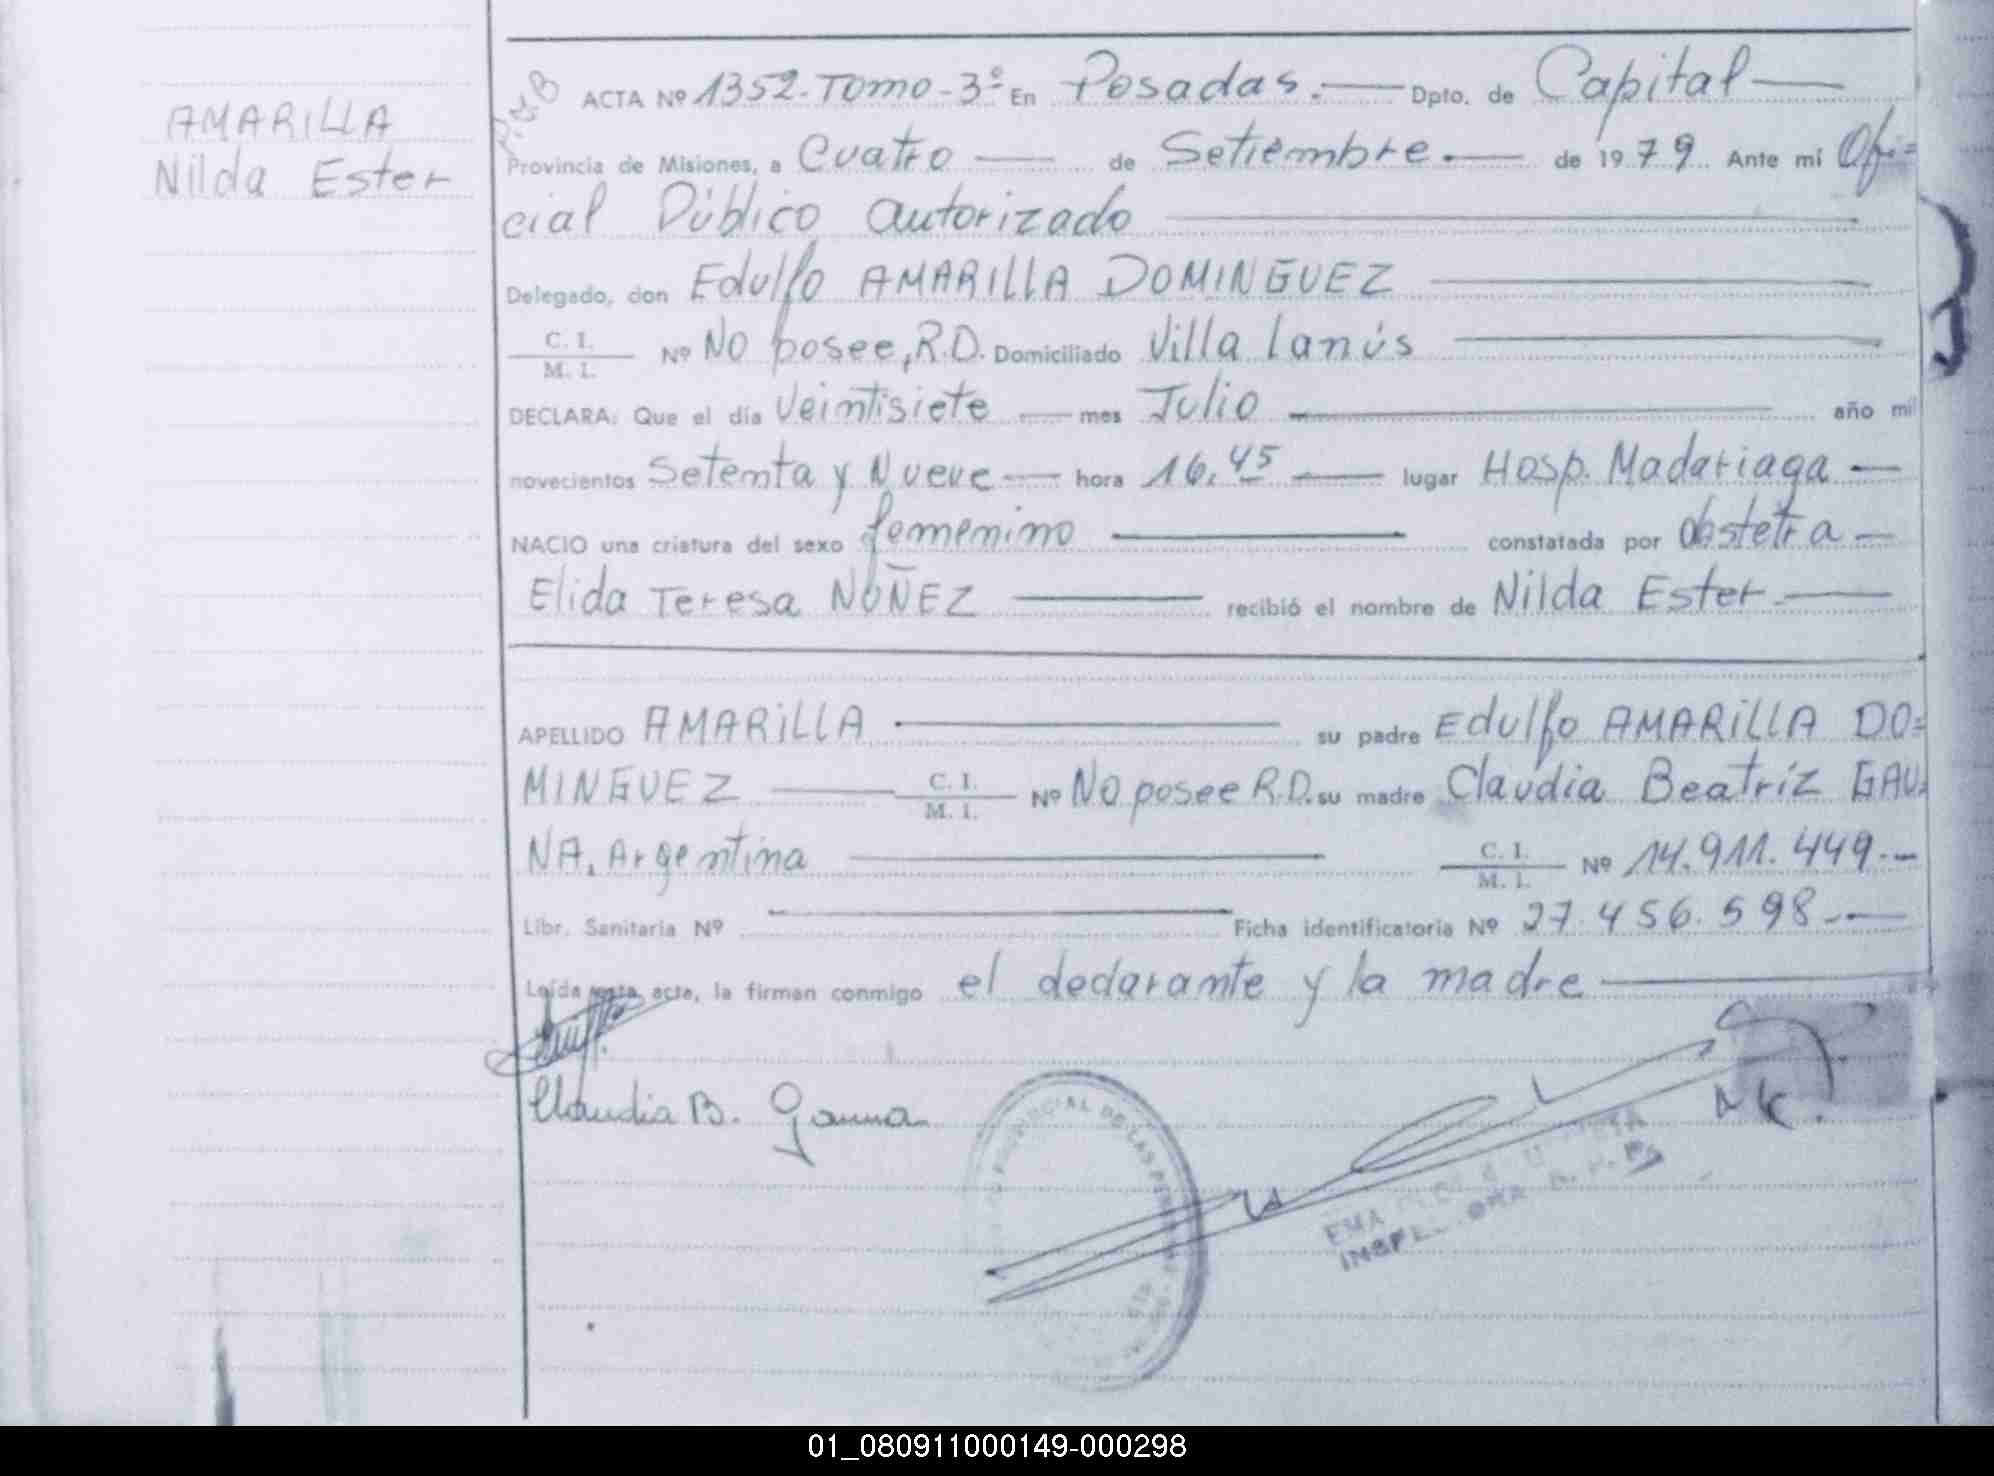 AMARILLA
Nilda Ester
ACTA Nº 1352-Tomo-3º En Posadas.— Dpto. de Capital—
Provincia de Misiones, a Cuatro — de Setiembre.— de 1979. Ante mí Ofi=
cial Público autorizado —
Delegado, don Edulfo AMARILLA DOMINGUEZ —
C. I.
M. I. Nº No posee, R.D. Domiciliado Villa Lanús —
DECLARA: Que el día Veintisiete — mes Julio — año mil
novecientos Setenta y Nueve — hora 16,45 — lugar Hosp. Madariaga —
NACIO una criatura del sexo femenino — constatada por obstetra —
Elida Teresa NÚÑEZ — recibió el nombre de Nilda Ester.—
APELLIDO AMARILLA — su padre Edulfo AMARILLA DO=
MINGUEZ — C. I. M. I. Nº No posee R.D. su madre Claudia Beatriz GAU=
NA, Argentina — C. I. M. I. Nº 14.911.449.—
Libr. Sanitaria Nº — Ficha identificatoria Nº 27.456.598.—
Leída esta acta, la firman conmigo el declarante y la madre —
Claudia B. Gauna
PROVINCIAL DE LAS PERSONAS
EMA
01_080911000149-000298